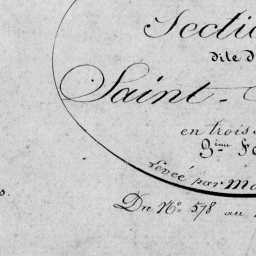 Section
dite d
Saint-
en trois
3ème Fe
Levée par M
Du N° 578 au